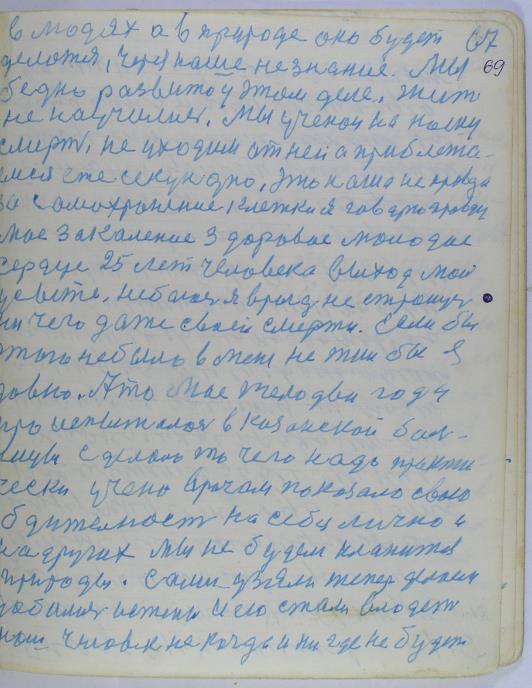 в людях а в природе оно будет 67
делатся, через наше незнание. Мы 69
бедно развиты у этом деле. Жить
не научились. Мы ученой на
смерть, не уходим от ней а приближа-
емся ежесекундно, Это наша не правда
За самохранение клетки я говарю правду
Мое Закаление Здоровое молодое
сердце 25 лет человека выход мой
я враг не строшус
ни чего даже своей смерти. Если бы
этого небыло в мене не жил бы я
давно. А то мое тело два года
в Казанской бол-
сделала то чего надо практи-
чески учено врачам показало свою
бдителност на себе лично и
на других Мы не будем кланятся
природы. Сами узяли тепер делаем
истены и ею стали владет
наш Человек не когда и ни где не будет